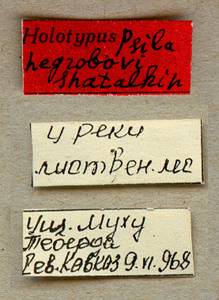 Holotypus Psila
negrobovi
shatalkin
у реки
листвен. лес
Ущ. Муху
Теберда
Сев. Кавказ 9.VI.968